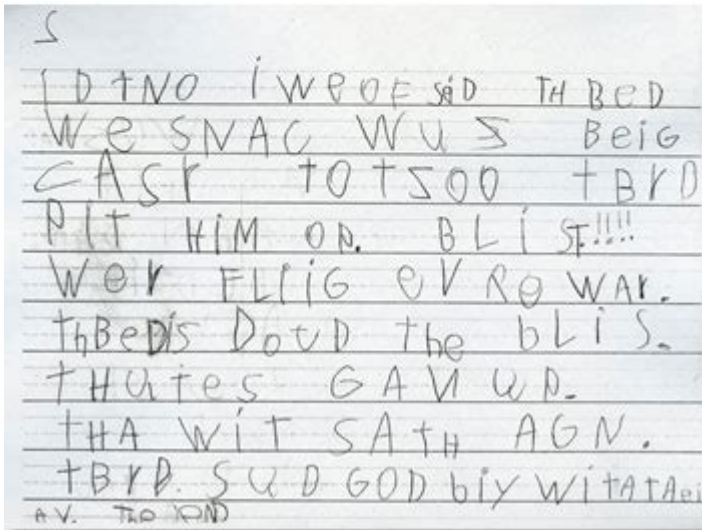 S
I DtNO i WeOE SAiD TH BeD
We SNAC WUS BeiG
CASY tO tSOO tBrD
PIT HiM OP. BLiST.!!!!
Wer FLiiG eVReWAr.
thBeDis DotD the bLiS.
tHUteS GAV UP.
tHA WiT SAtH AGN.
tBrD. SUD GOD biy WitAtAei
AV. The END